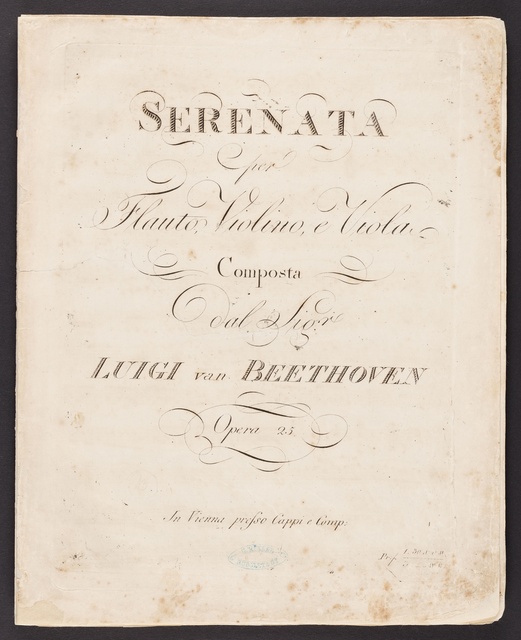 SERENATA
per
Flauto, Violino, e Viola
Composta
dal Sigr.
LUIGI van BEETHOVEN
Opera 25.
In Vienna presso Cappi e Comp: